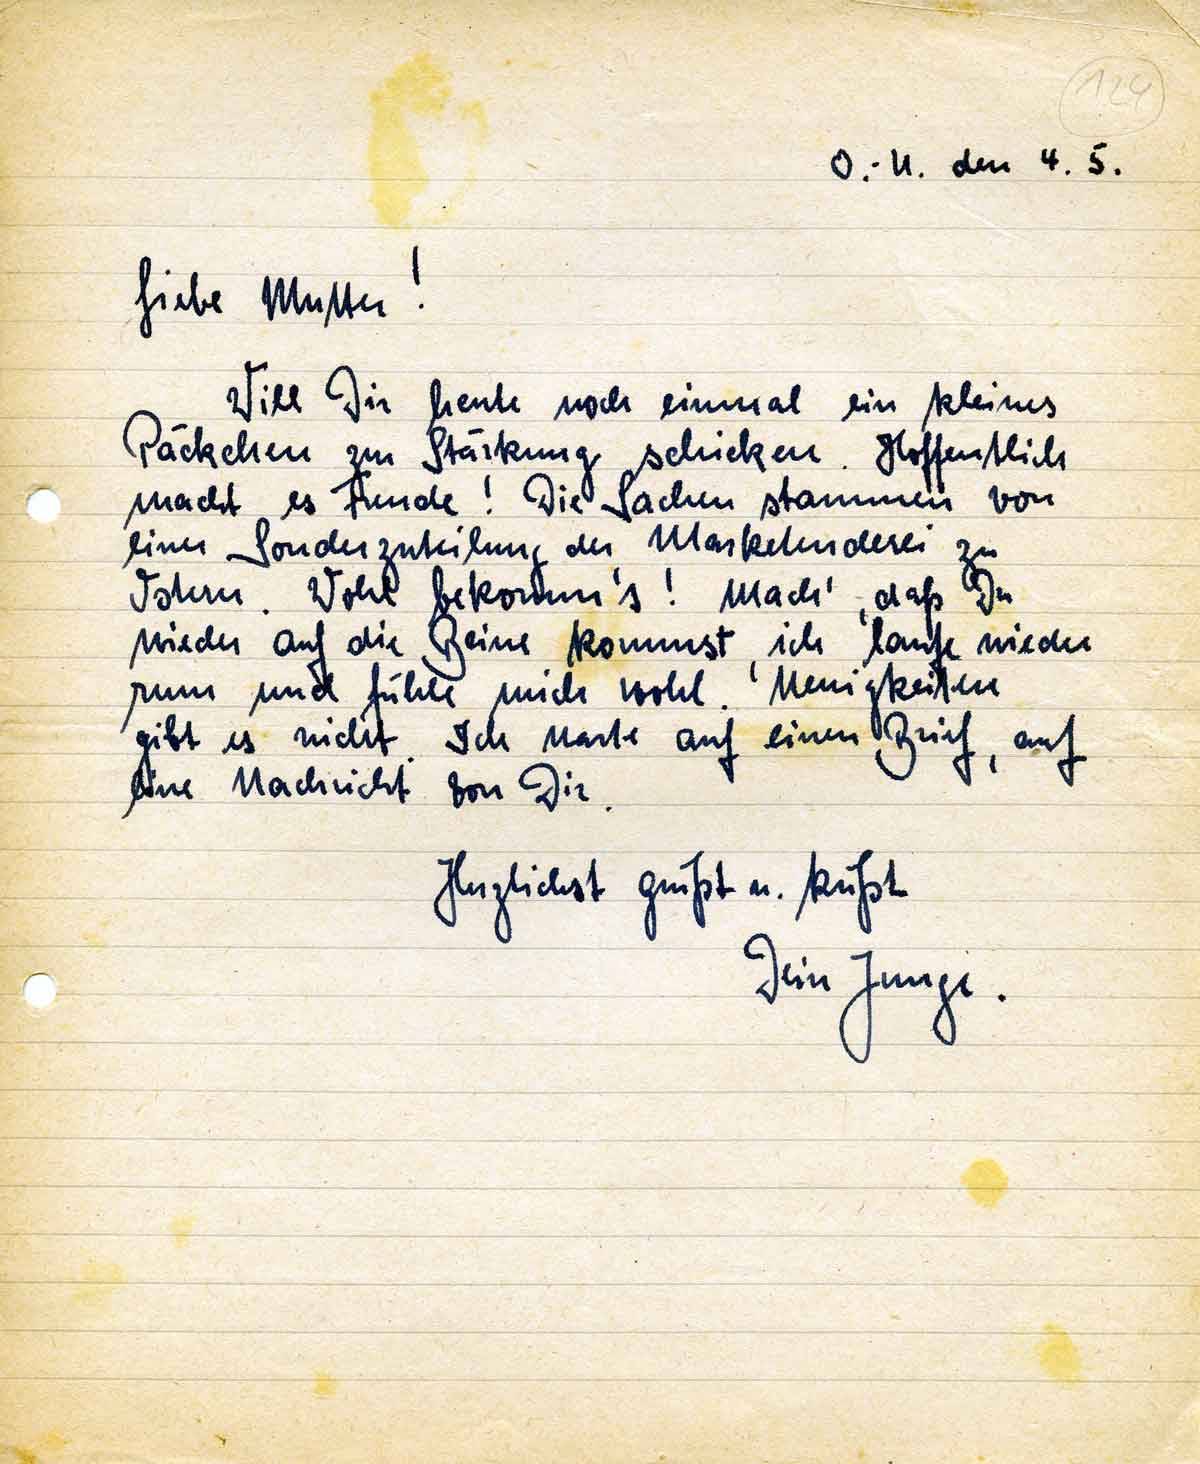 124
O.-U. den 4. 5.
Liebe Mutter!
Will Dir heute noch einmal ein kleines
Päckchen zur Stärkung schicken. Hoffentlich
macht es Freude! Die Sachen stammen von
einer Sonderzuteilung der Marketenderei zu
Ostern. Wohl bekomm's! Mach', daß Du
wieder auf die Beine kommst, ich laufe wieder
rum und fühle mich wohl. Neuigkeiten
gibt es nicht. Ich warte auf einen Brief, auf
eine Nachricht von Dir.
Herzlichst grüßt u. küßt
Dein Junge.